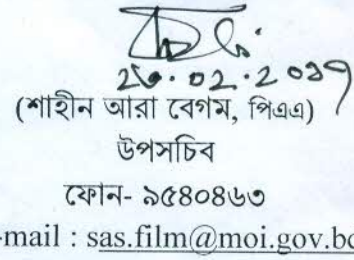 (শাহীন আরা বেগম, পিএএ)
উপসচিব
ফোন- ৯৫৪০৪৬৩
-mail : sas.film@moi.gov.bd